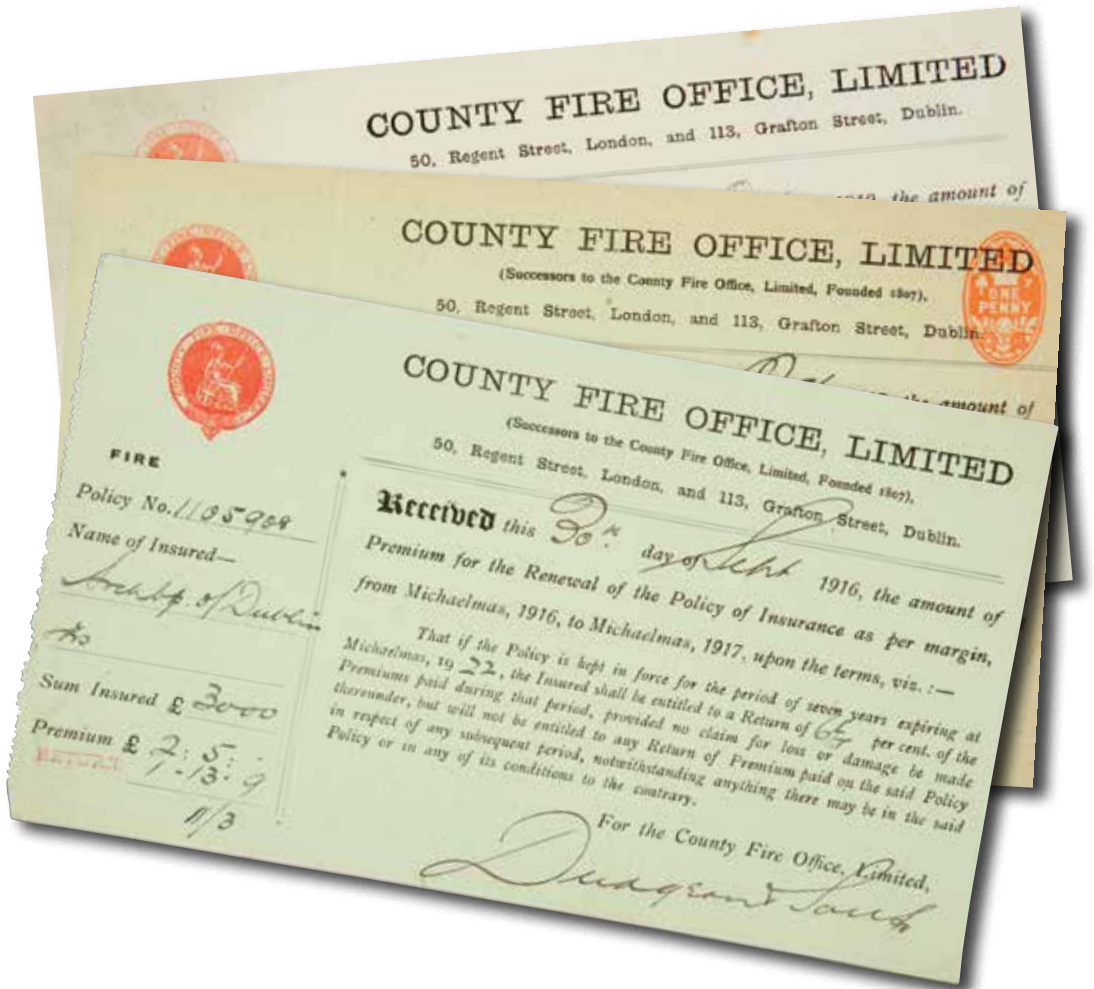 COUNTY FIRE OFFICE, LIMITED
50, Regent Street, London, and 113, Grafton Street, Dublin.
the amount of
COUNTY FIRE OFFICE, LIMITED
(Successors to the County Fire Office, Limited, Founded 1807),
50, Regent Street, London, and 113, Grafton Street, Dublin.
ONE
PENNY
the amount of
COUNTY FIRE OFFICE, LIMITED
(Successors to the County Fire Office, Limited, Founded 1807),
50, Regent Street, London, and 113, Grafton Street, Dublin.
FIRE
Policy No. 1105908
Name of Insured—
Archbp. of Dublin
Sum Insured £ 3000
Premium £ 2: 5: .
RETURN 1 - 13: 9
11/3
Received this 30th day of Sept 1916, the amount of
Premium for the Renewal of the Policy of Insurance as per margin,
from Michaelmas, 1916, to Michaelmas, 1917, upon the terms, viz. :—
That if the Policy is kept in force for the period of seven years expiring at
Michaelmas, 1922, the Insured shall be entitled to a Return of per cent. of the
Premiums paid during that period, provided no claim for loss or damage be made
thereunder, but will not be entitled to any Return of Premium paid on the said Policy
in respect of any subsequent period, notwithstanding anything there may be in the said
Policy or in any of its conditions to the contrary.
For the County Fire Office, Limited,
Dudgeon &